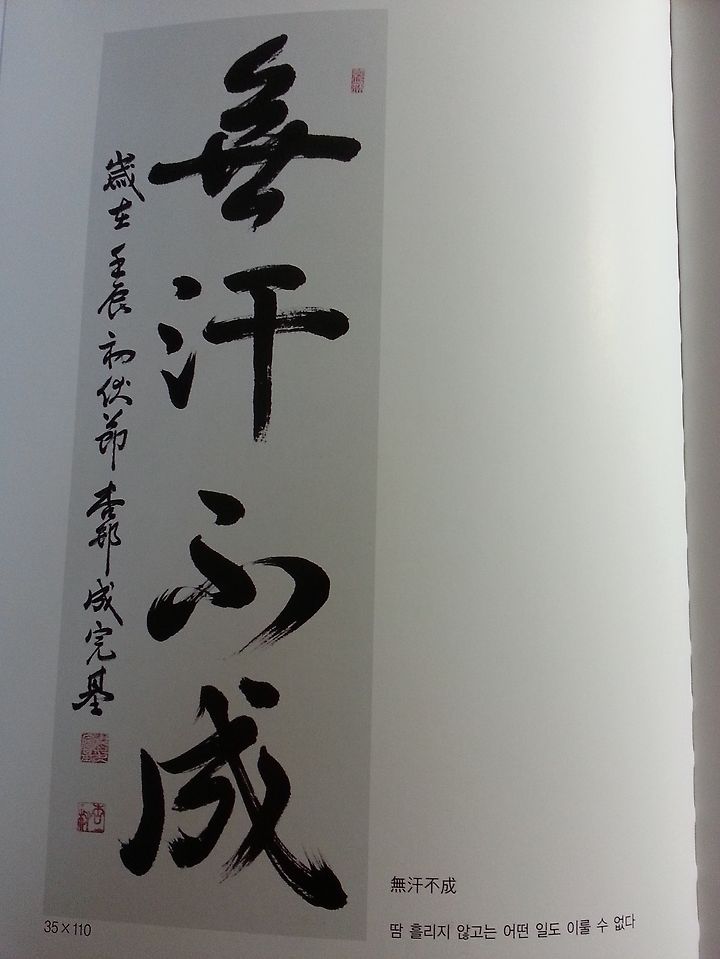 無汗不成
歲在壬辰初伏節 杏邨 成完基
無汗不成
땀 흘리지 않고는 어떤 일도 이룰 수 없다
35×110